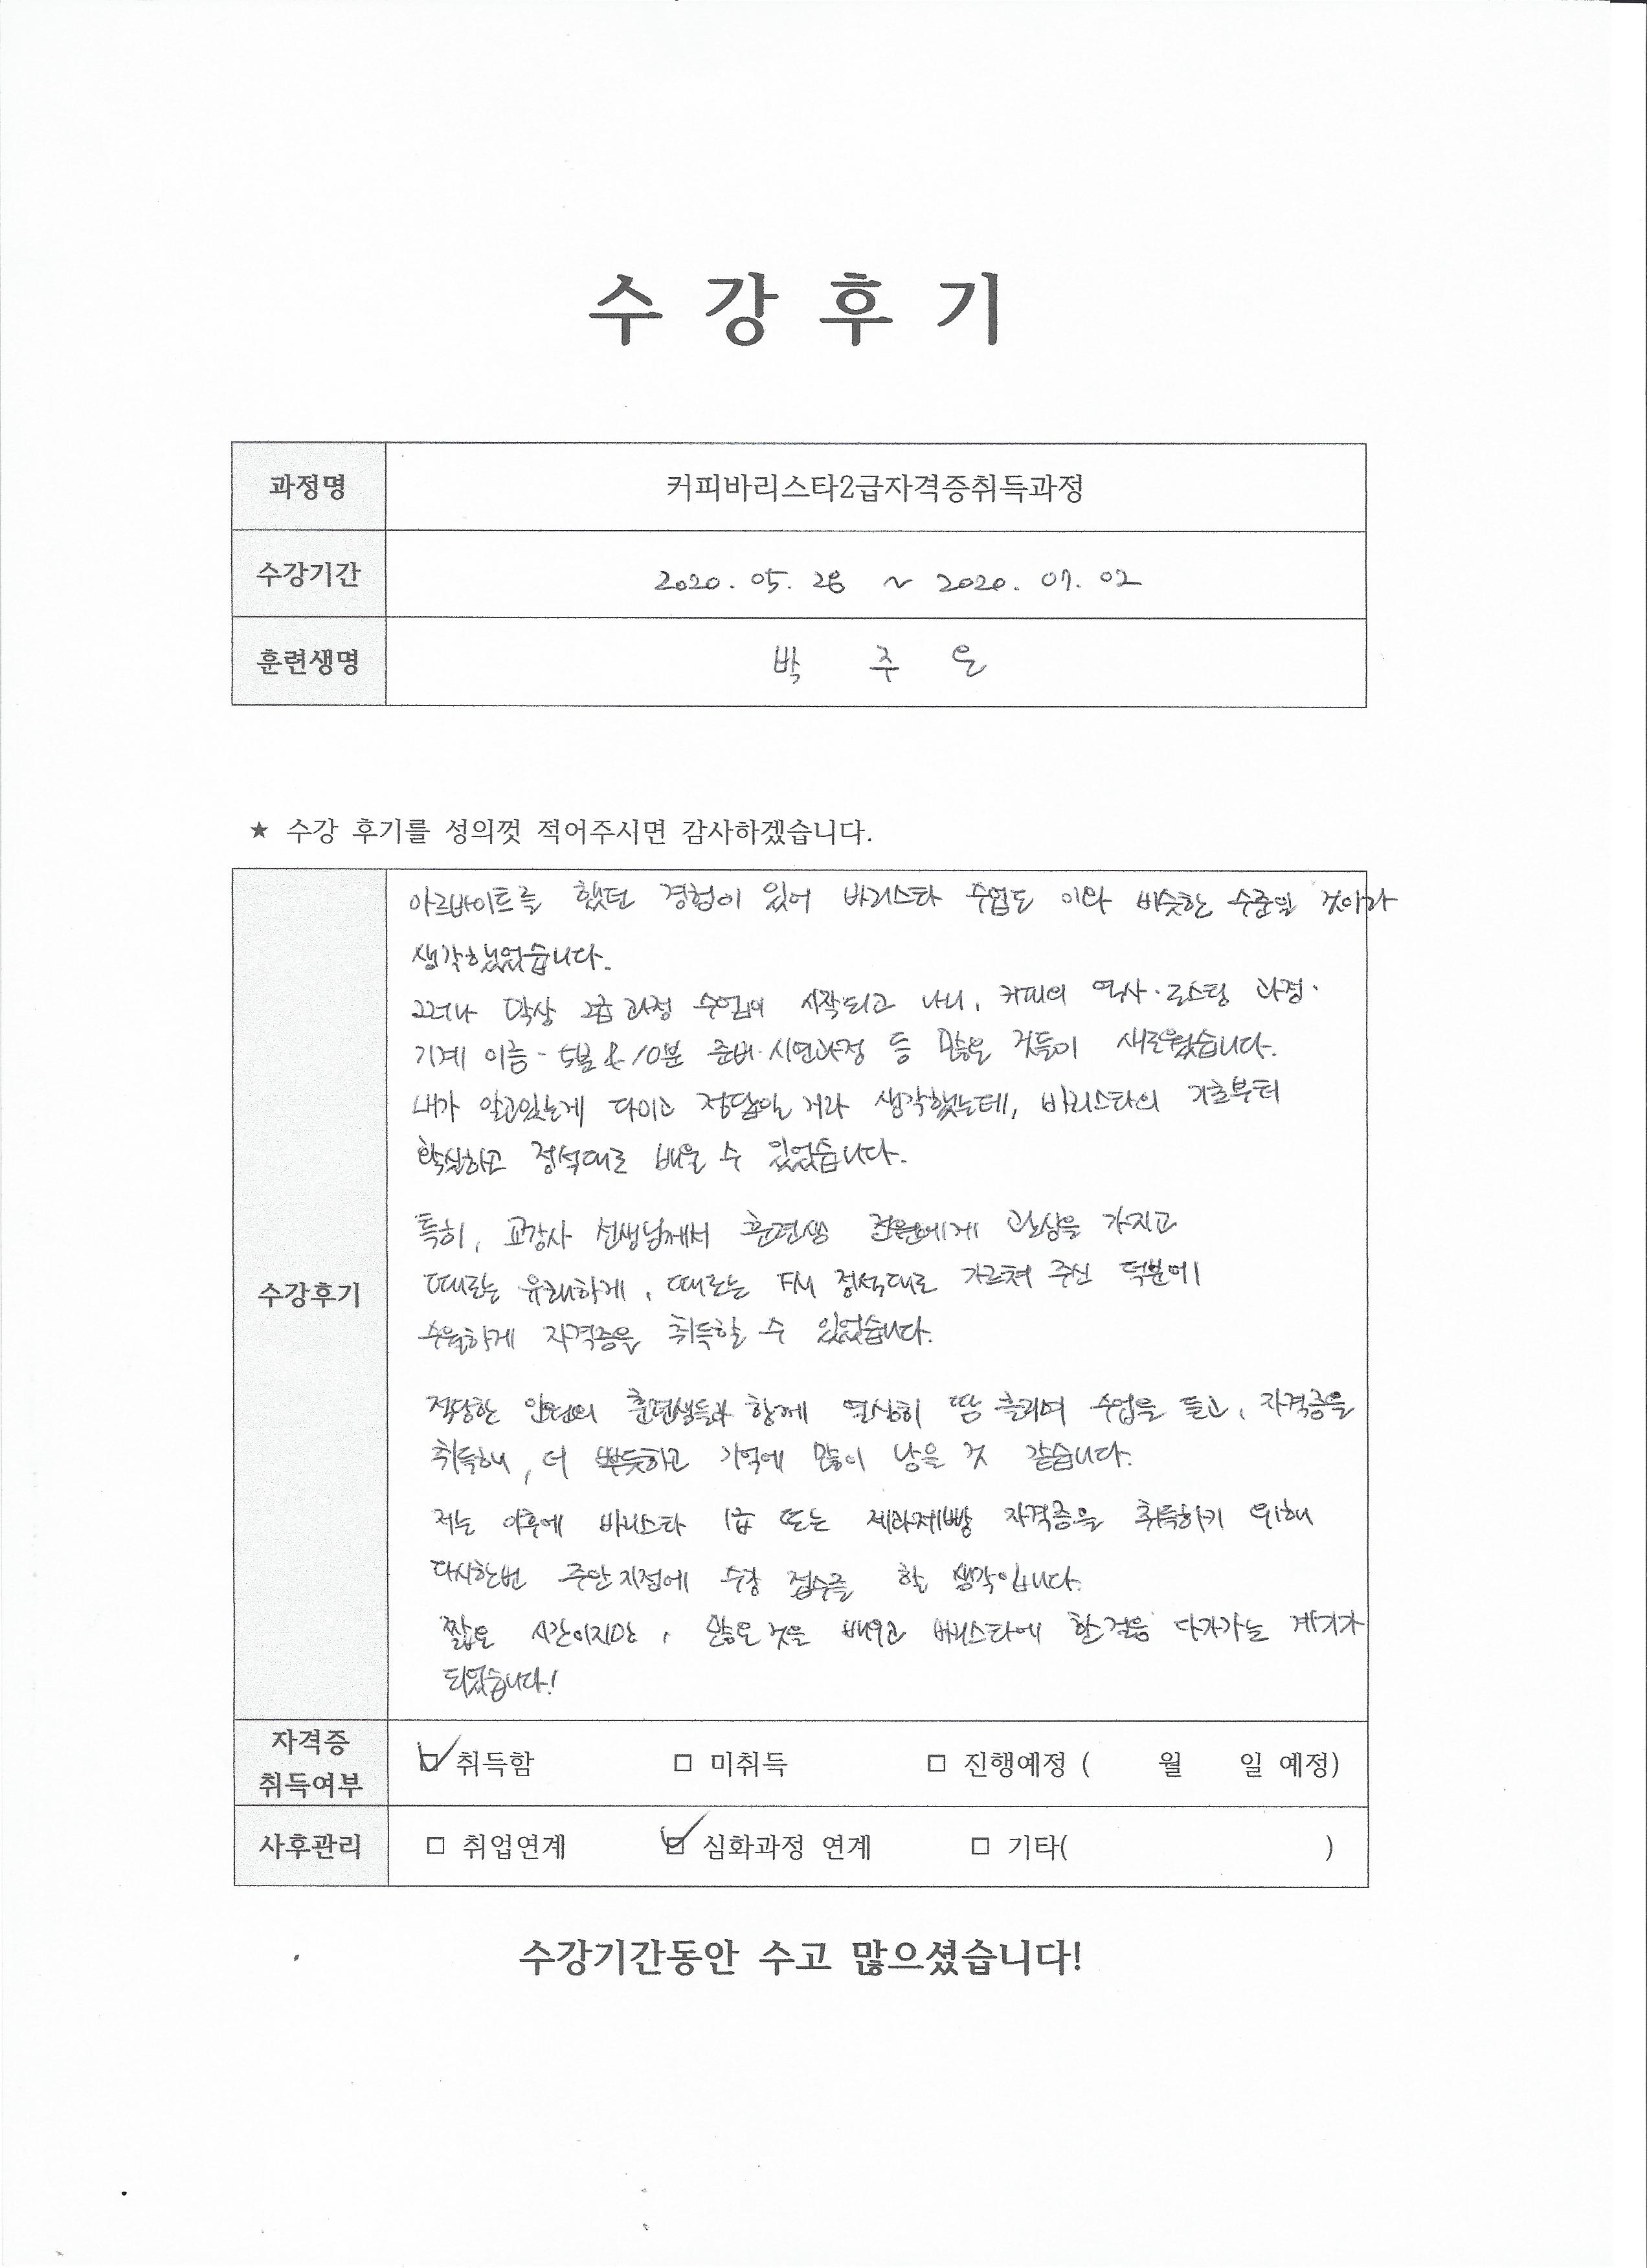 수 강 후 기
과정명 커피바리스타2급자격증취득과정
수강기간 2020. 05. 28 ~ 2020. 07. 02
훈련생명 박 주 은
★ 수강 후기를 성의껏 적어주시면 감사하겠습니다.
수강후기
아르바이트를 했던 경험이 있어 바리스타 수업도 이와 비슷한 수준일 것이라
생각했었습니다.
그러나 막상 2급 과정 수업이 시작되고 나니, 커피의 역사·로스팅 과정·
기계 이름·5분 & 10분 준비·시연과정 등 많은 것들이 새로웠습니다.
내가 알고있는게 다이고 정답일 거라 생각했는데, 바리스타의 기초부터
확실하고 정석대로 배울 수 있었습니다.
특히, 교강사 선생님께서 훈련생 전원에게 관심을 가지고
때로는 유쾌하게, 때로는 FM 정석대로 가르쳐 주신 덕분에
수월하게 자격증을 취득할 수 있었습니다.
적당한 인원의 훈련생들과 함께 열심히 땀 흘리며 수업을 듣고, 자격증을
취득해, 더 뿌듯하고 기억에 많이 남을 것 같습니다.
저는 이후에 바리스타 1급 또는 제과제빵 자격증을 취득하기 위해
다시한번 주안지점에 수강 접수를 할 생각입니다.
짧은 시간이지만, 많은 것을 배우고 바리스타에 한걸음 다가가는 계기가
되었습니다!
자격증
취득여부 ☑ 취득함 □ 미취득 □ 진행예정 ( 월 일 예정)
사후관리 □ 취업연계 ☑ 심화과정 연계 □ 기타( )
수강기간동안 수고 많으셨습니다!